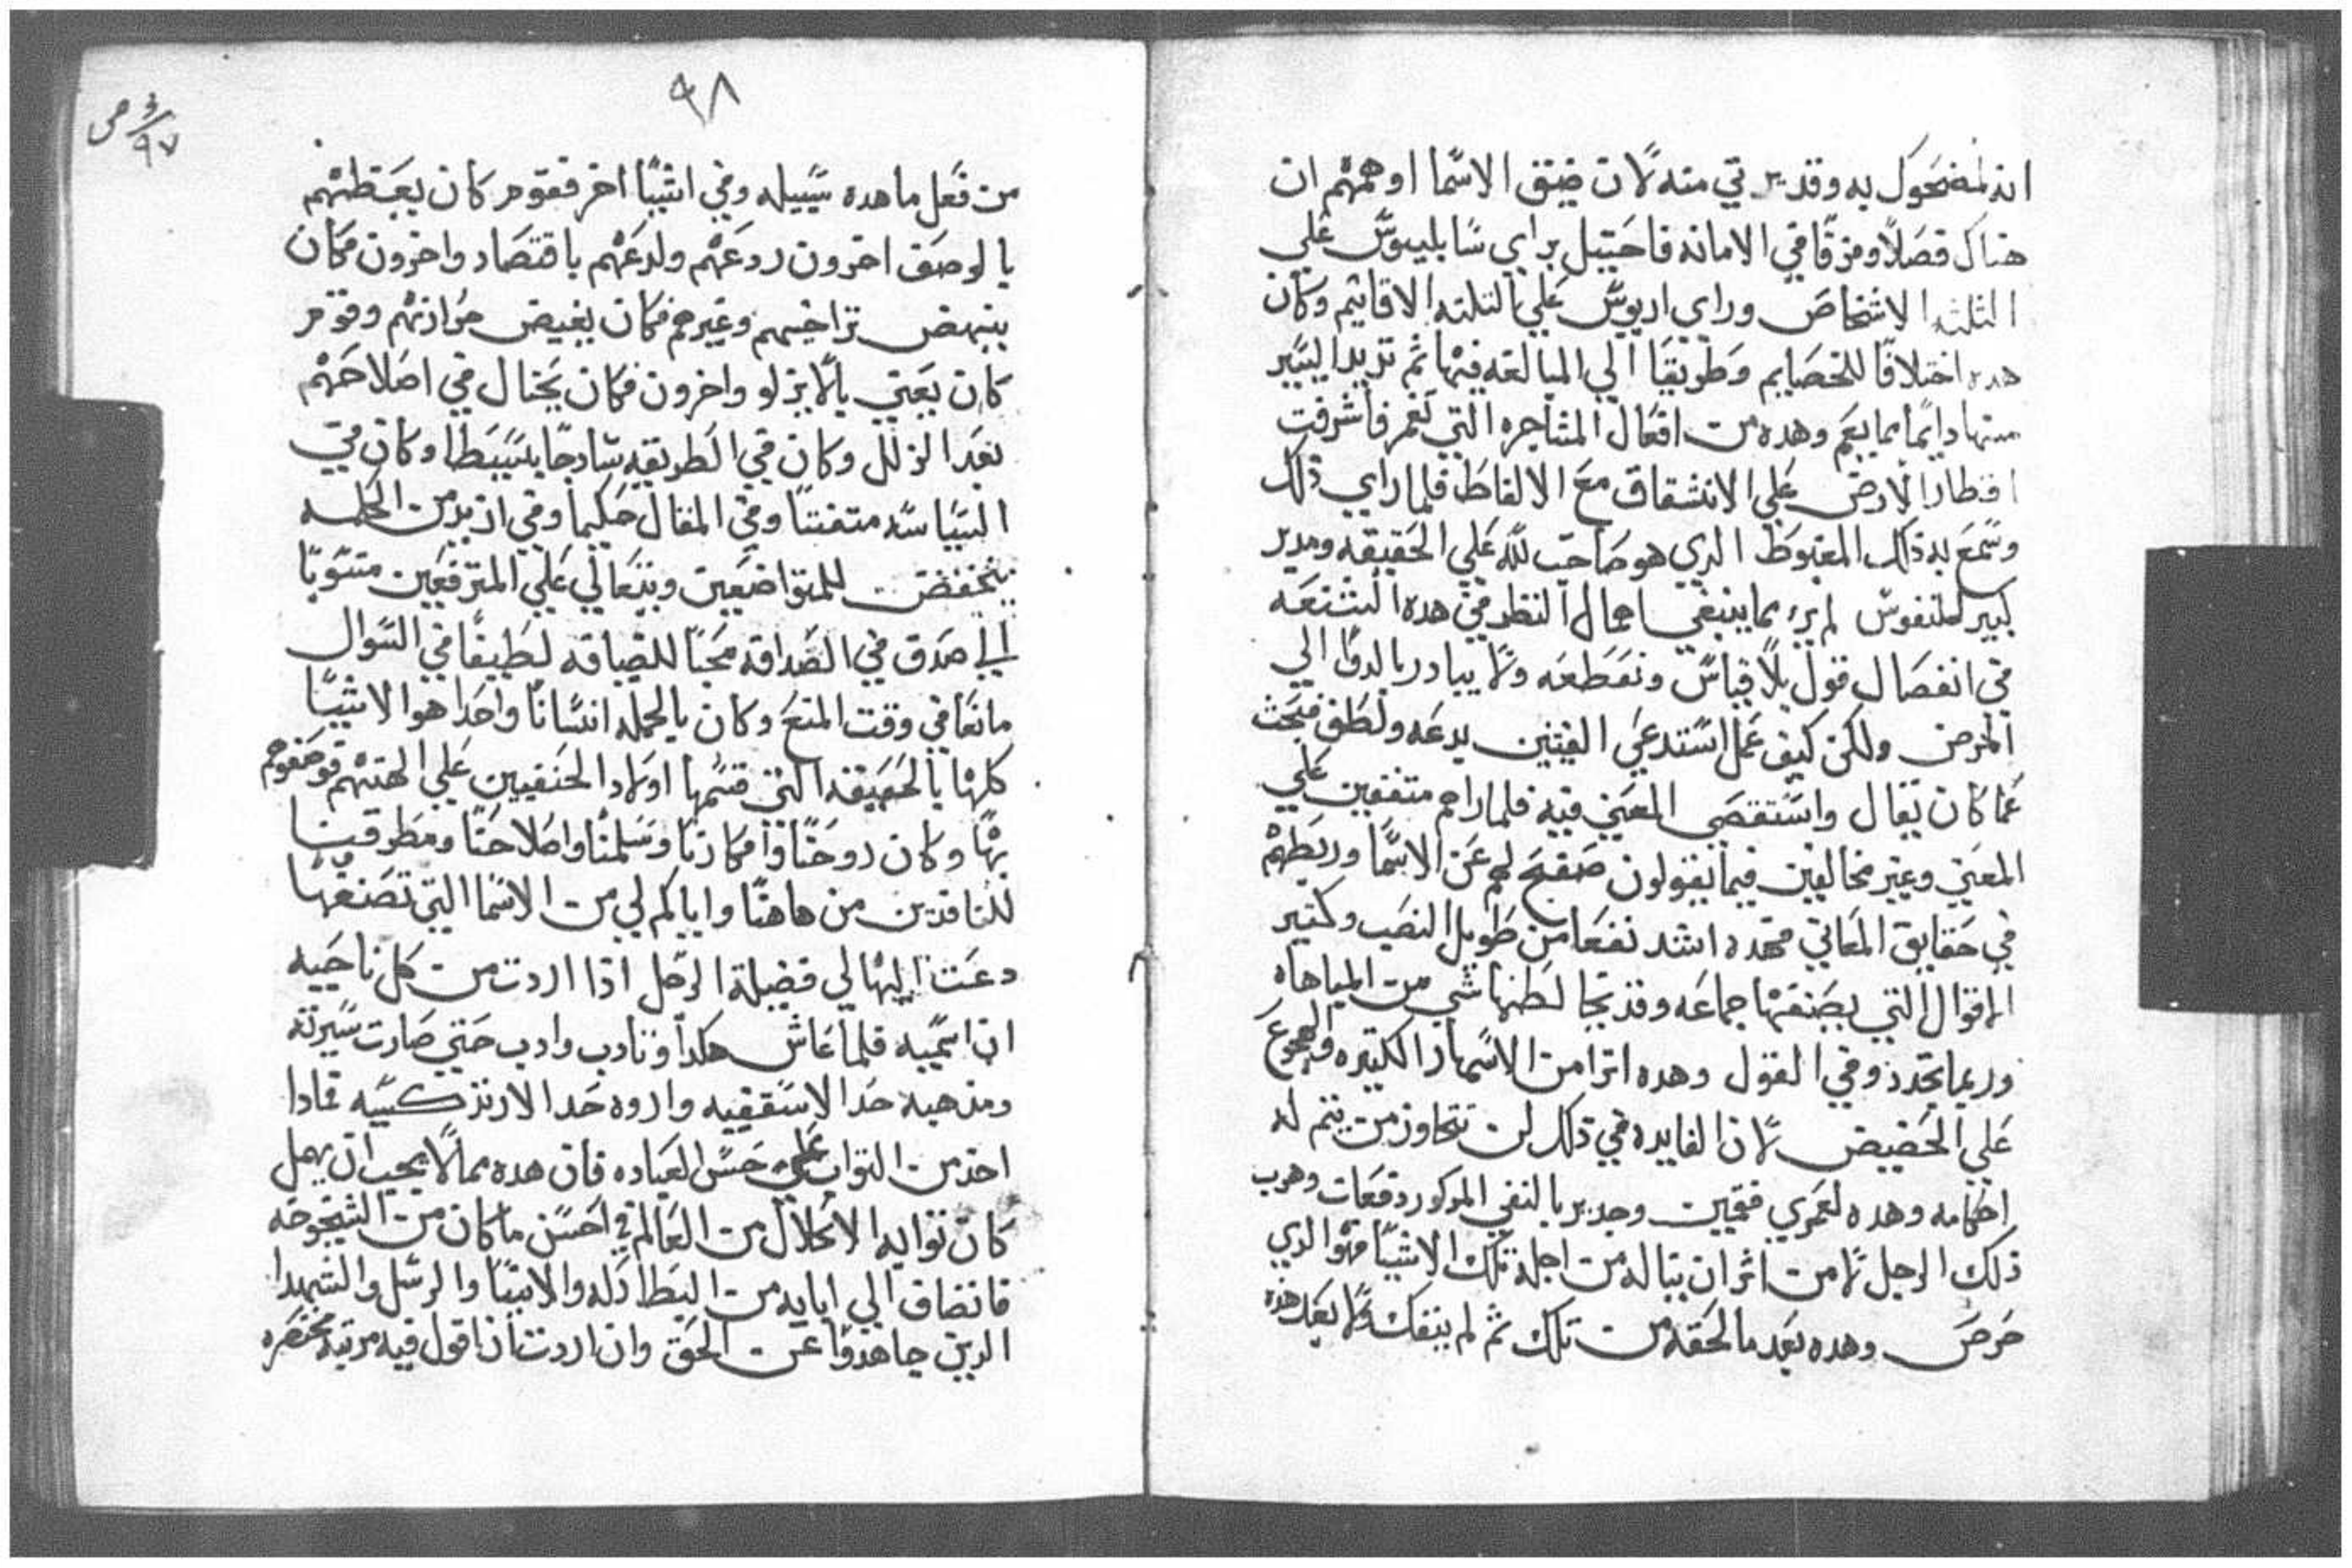 انه لمضحوك به وقد يرتي منه لان ضيق الاسما اوهمهم ان
هناك فصلا وفرقا في الامانه فاحتيل براي سابليوس علي
الثلثه الاشخاص وراي اريوس علي التلته الاقانيم وكان
هده اختلاقا للخصايم وطريقا الي المبالغه فيها ثم تزيد اليسير
منها دايما مما يعم وهده من افعال المشاجره التي تغمر فاشرفت
اقطار الارض علي الانشقاق مع الالفاظ فلما راي ذلك
وسمع به ذلك المغبوط الدي هو صاحب لله علي الحقيقه ومدبر
كبير للنفوس لم ير مما ينبغي اهمال النظر في هده الشنعه
في انفصال قول بلا قياس وتقطعه ولا يبادر بالدوا الي
المرض ولكن كيف عمل استدعي الفيتين بدعه ولطف فبحث
عما كان يقال واستقصي المعني فيه فلما راهم متفقين علي
المعني وغير مخالفين فيما يقولون صفح لهم عن الاسما وربطهم
في حقايق المعاني فهده اشد نفعا من طويل النصب وكتير
الاقوال التي يصنفها جماعه وقد تخالطها شي من المباهاه
وربما تجدد وفي القول وهده اترا من الاسهار الكتيره والهجوع
علي الحضيض لان الفايده في ذلك لن تتجاوز من يتم له
احكامه وهده لعمري فقمين وجدير بالنفي المدكور دفعات وهرب
ذلك الرجل لامن اثر ان يناله من اجله تلك الاشيا فهوا الدي
حرص وهده بعد ما لحقه من تلك ثم لم ينفك ولا بعد هده
٩٨
٩٧
من فعل ما هده سبيله وفي اشيا اخر فقوم كان يعظهم
بالوصف اخرون ردعهم ولدعهم باقتصاد واخرون فكان
ينهض تراخيهم وغيرهم فكان يغيض حرارتهم وقوم
كان يعني بالا يزلو واخرون فكان يحتال في اصلاحهم
بعد الزلل وكان في الطريقه سادجا بسيطا وكان في
السياسه متفننا وفي المقال حكيما وفي ازيد من الحكمه
يتخفض للمتواضعين ويتعالي علي المترفعين منسوبا
الي صدق في الصداقه محبا للضيافه لطيفا في السوال
مانعا في وقت المنع وكان بالجمله انسانا واحدا هو الاشيا
كلها بالحقيقه التي قسمها اولاد الحنفيين علي الهتهم فوصفوهم
بها وكان روحنا وافكارنا وسلمنا واصلاحنا ومطرقنا
للنافدين من هاهنا واياكم لي من الاسما التي تصنعها
دعتنا اليها لي فضيلة الرجل اذا اردت من كل ناحيه
ان اسميه فلما عاش هكدا وتادب وادب حتي صارت سيرته
ومذهبه حدا لاسقفيه واروه حدا لارتزكسيه فمادا
اخد من التواب علي حسن العباده فان هده مما لا يجب ان يهمل
كان توايه الاحلال من العالم في احسن ما كان من الشيخوخه
فانضاف الي ابايه من البطاركه والانبيا والرسل والشهدا
الدين جاهدوا عن الحق وان اردت ان اقول فيه مرتيه مختصره